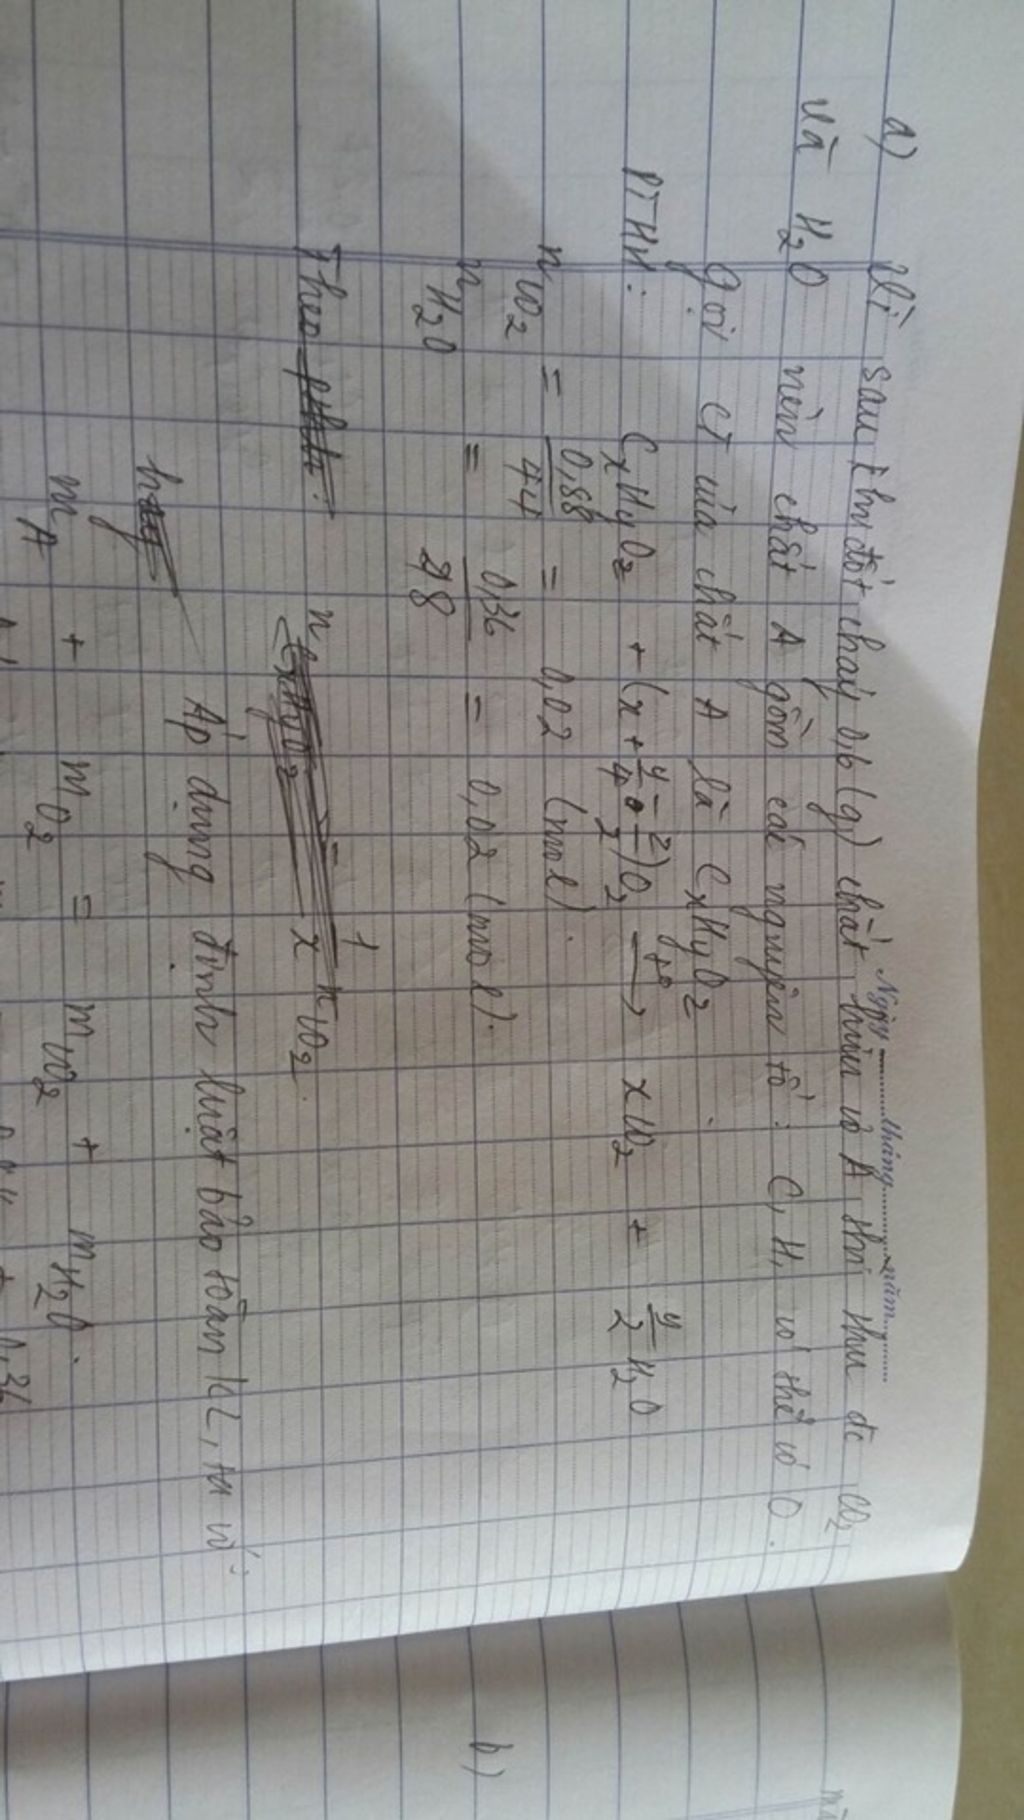 Ngày ........ tháng ........ năm ........
a) Vì sau khi đốt cháy 0,6 (g) chất hữu cơ A thì thu đc CO2
và H2O nên chất A gồm các nguyên tố : C, H, có thể có O.
Gọi CT của chất A là CxHyOz
PTHH: CxHyOz + (x + y/4 - z/2) O2 -t°-> xCO2 + y/2 H2O
nCO2 = 0,88/44 = 0,02 (mol).
nH2O = 0,36/18 = 0,02 (mol).
Theo 1/x nCO2.
Áp dụng định luật bảo toàn KL, ta có
mA + mO2 = mCO2 + mH2O.
0,36
b)